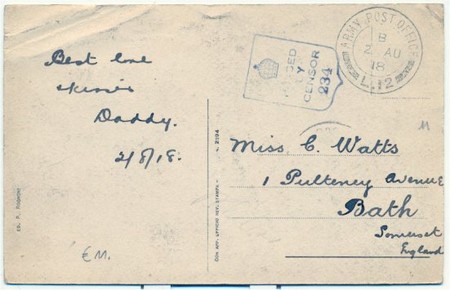 Best love
& kisses
Daddy.
2/8/18.
£M.
PASSED
BY
CENSOR
234
ARMY POST OFFICE
B
2 AU
18
L.12
11
Miss C. Watts
1 Pulteney Avenue
Bath
Somerset
England